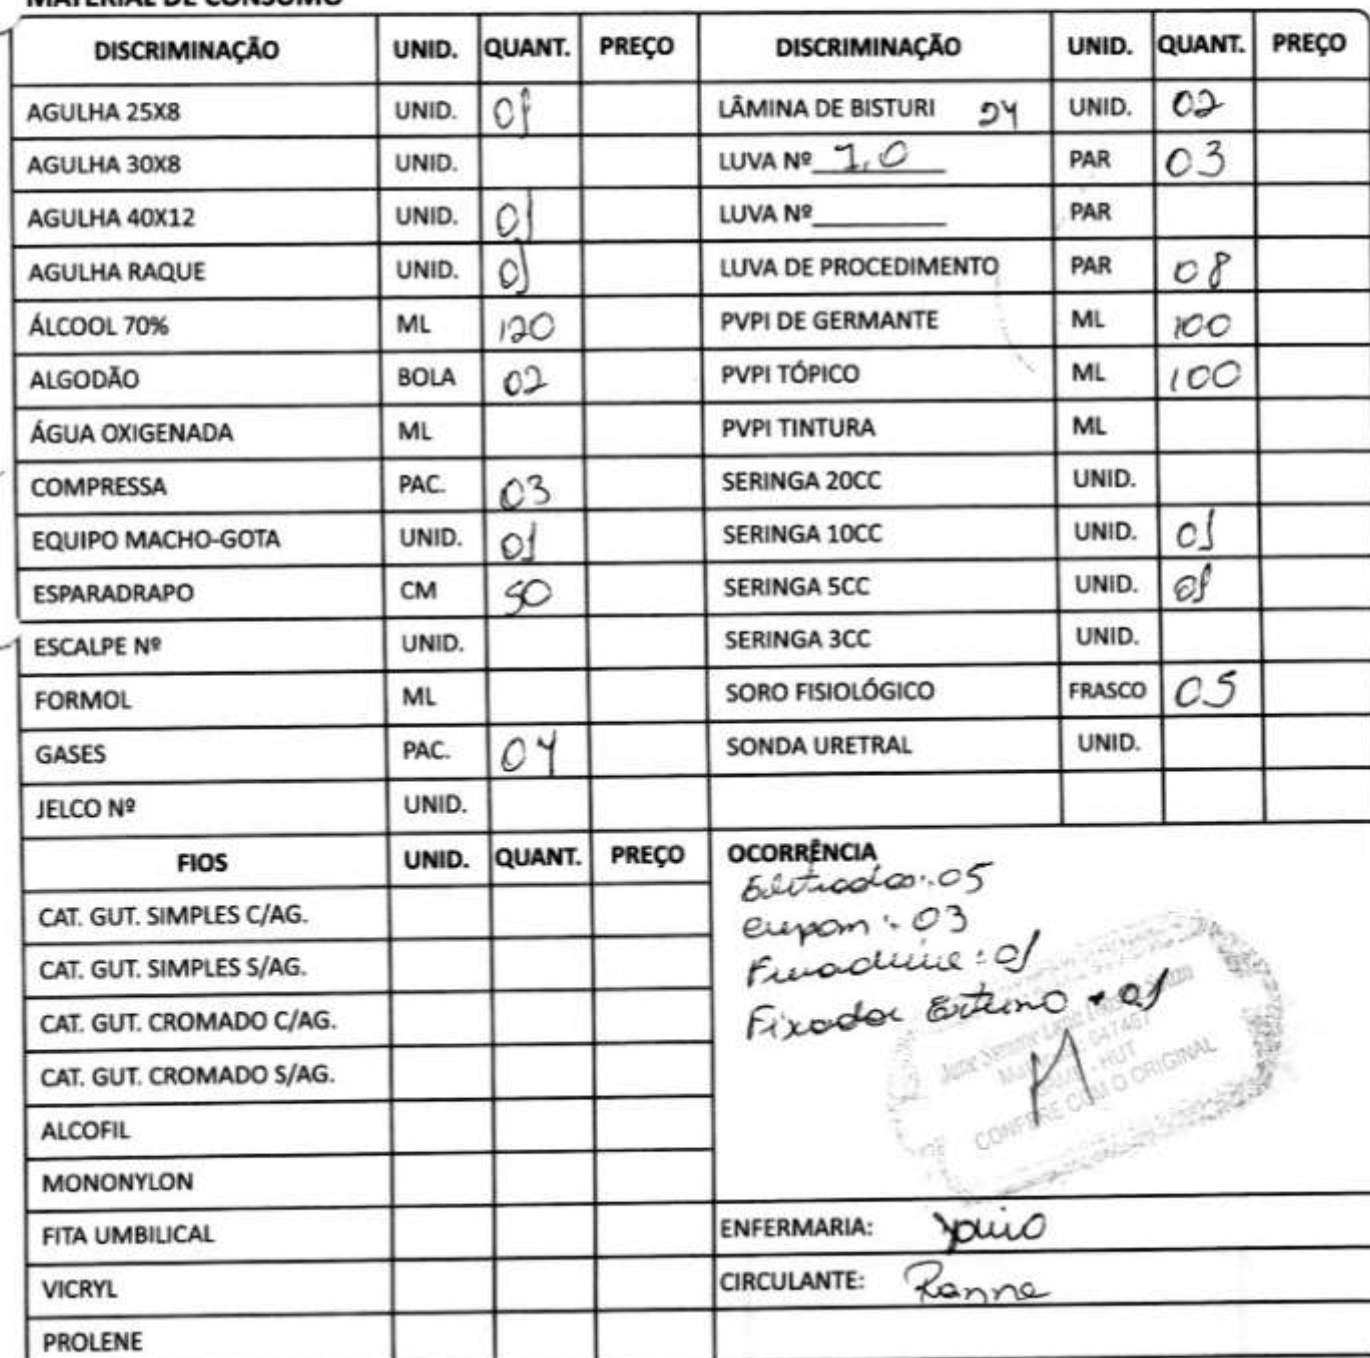 MATERIAL DE CONSUMO
DISCRIMINAÇÃO UNID. QUANT. PREÇO DISCRIMINAÇÃO UNID. QUANT. PREÇO
AGULHA 25X8 UNID. 01 LÂMINA DE BISTURI 24 UNID. 02
AGULHA 30X8 UNID. LUVA Nº 7,0 PAR 03
AGULHA 40X12 UNID. 01 LUVA Nº______ PAR
AGULHA RAQUE UNID. 01 LUVA DE PROCEDIMENTO PAR 08
ÁLCOOL 70% ML 120 PVPI DE GERMANTE ML 100
ALGODÃO BOLA 02 PVPI TÓPICO ML 100
ÁGUA OXIGENADA ML PVPI TINTURA ML
COMPRESSA PAC. 03 SERINGA 20CC UNID.
EQUIPO MACHO-GOTA UNID. 01 SERINGA 10CC UNID. 01
ESPARADRAPO CM 50 SERINGA 5CC UNID. 01
ESCALPE Nº UNID. SERINGA 3CC UNID.
FORMOL ML SORO FISIOLÓGICO FRASCO 05
GASES PAC. 04 SONDA URETRAL UNID.
JELCO Nº UNID.
FIOS UNID. QUANT. PREÇO OCORRÊNCIA
: 05
CAT. GUT. SIMPLES C/AG.
: 03
CAT. GUT. SIMPLES S/AG.
: 01
CAT. GUT. CROMADO C/AG. Fixador Externo 01
CAT. GUT. CROMADO S/AG.
HUT
CONFERE COM O ORIGINAL
ALCOFIL
MONONYLON
FITA UMBILICAL ENFERMARIA:
VICRYL CIRCULANTE: Ranna
PROLENE